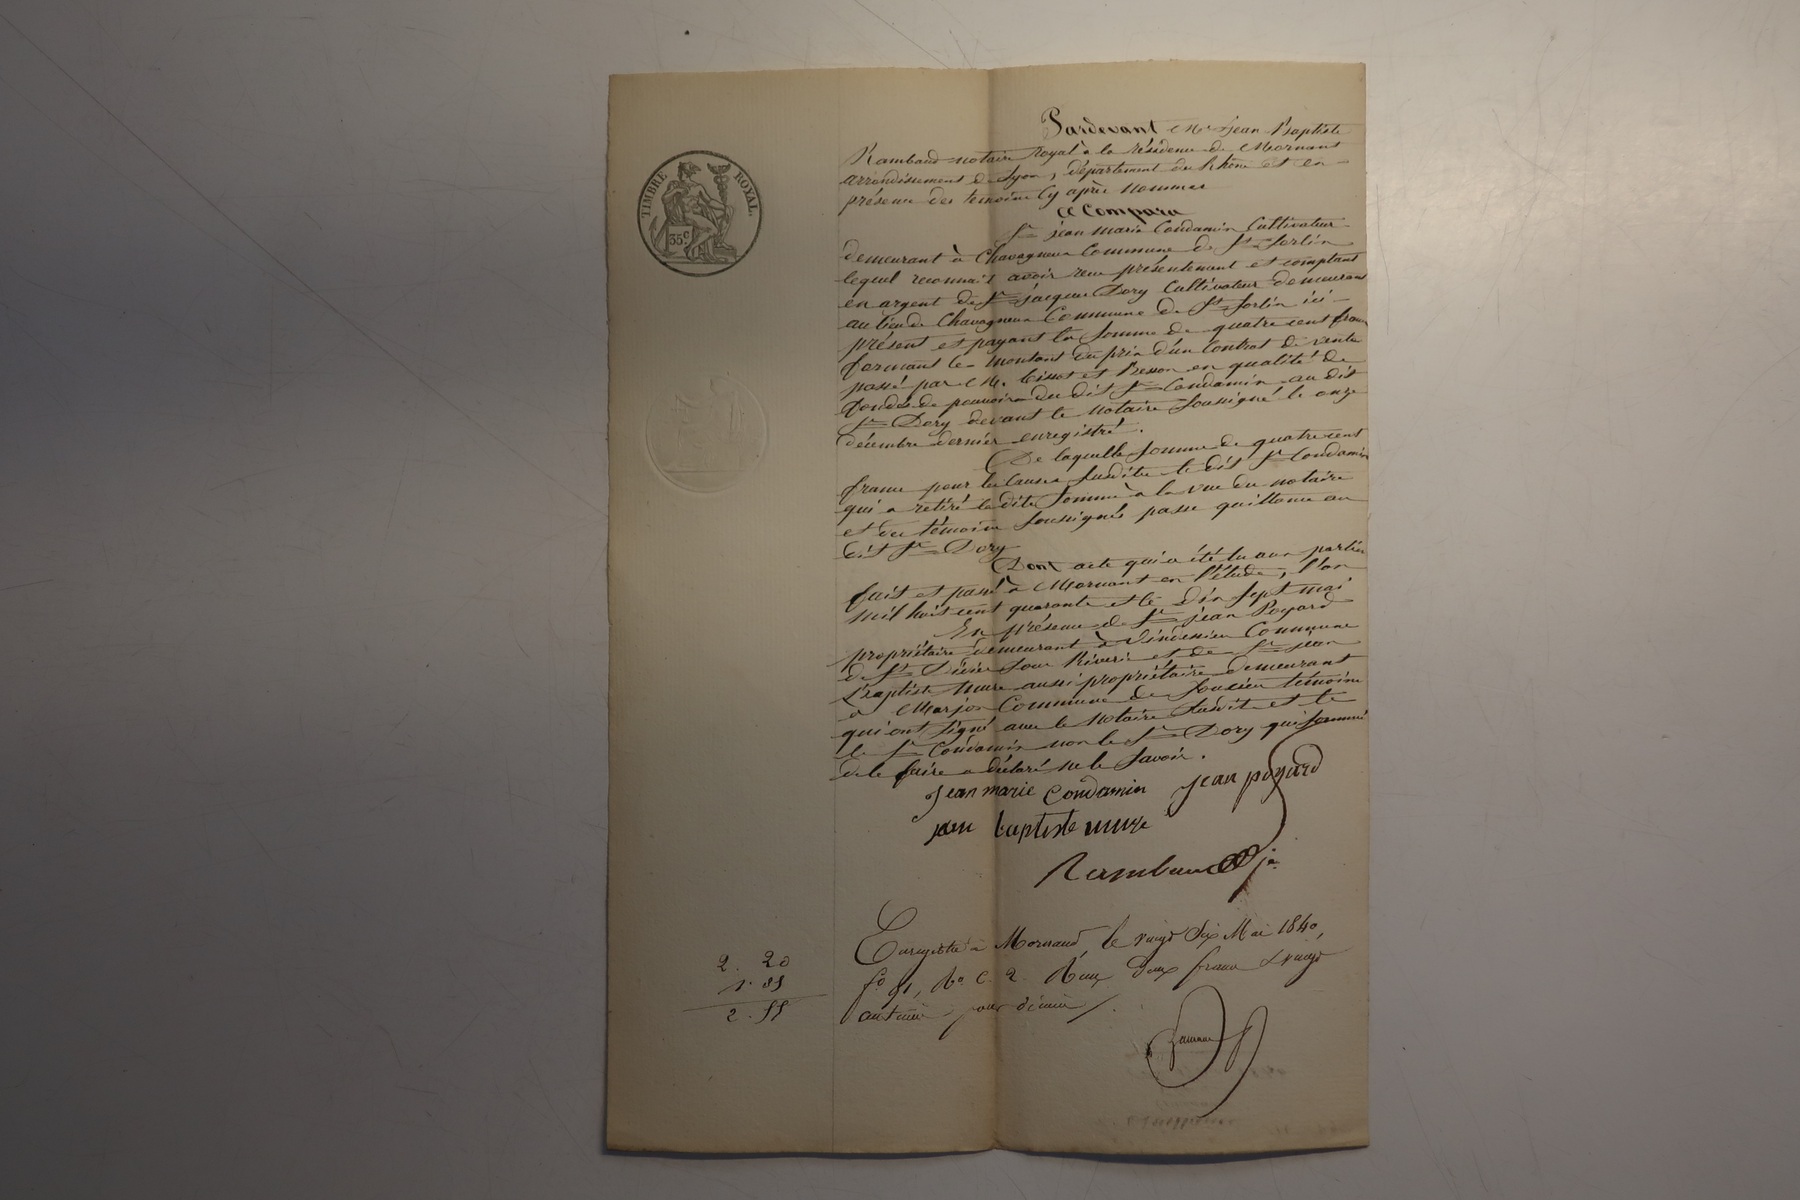 TIMBRE ROYAL.
35c
Pardevant Me Jean Baptiste
Rambaud notaire Royal à la résidence de Mornant
arrondissement de Lyon, département du Rhône et en
présence des témoins cy après nommés
A Comparu
Sr jean marie Condamin Cultivateur
demeurant à Chavagneux Commune de St Sorlin
lequel reconnait avoir reçu présentement et comptant
en argent de Sr jacque Dory Cultivateur demeurant
au lieu de Chavagneux Commune de St Sorlin ici
présent et payant la somme de quatre cent francs
formant le montant du prix d'un Contrat de vente
passé par M. Cissot et Besson en qualité de
fondés de pouvoirs du dit Sr Condamin au dit
Sr Dory devant le notaire soussigné le onze
décembre dernier enregistré.
De laquelle somme de quatre cent
francs pour les causes susdites le dit Sr Condamin
qui a retiré la dite somme à la vue du notaire
et des témoins soussignés passe quittance au
dit Sr Dory
Dont acte qui a été lu aux parties
fait et passé à Mornant en l'étude, l'an
mil huit cent quarante et le dix sept mai
En présence de Sr jean Poyard
propriétaire demeurant à Commune
de St Didier sous Riverie et de Sr jean
Baptiste Mure aussi propriétaire demeurant
à Marjon Commune de témoins
qui ont signé avec le notaire susdit et le
le Sr Condamin non le Sr Dory qui sommé
de le faire a déclaré ne le savoir.
Jean marie Condamin jean poyard
jean baptiste mure
Rambaud jne
Enregistré à Mornand, le vingt Six Mai 1840,
fo 91, Ro C. 2. Reçu deux francs & vingt
centimes pour décime
2. 20
2. 55